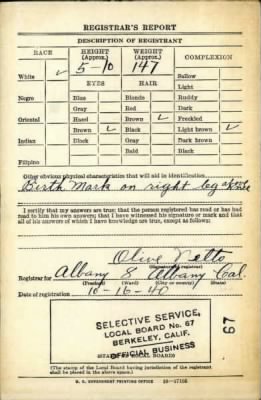 REGISTRAR'S REPORT
DESCRIPTION OF REGISTRANT
RACE HEIGHT (Approx.) WEIGHT (Approx.) COMPLEXION
5-10 147
White ✓ EYES HAIR Sallow
Light
Negro Blue Blonde Ruddy
Gray Red Dark
Oriental Hazel Brown ✓ Freckled
Brown ✓ Black Light brown ✓
Indian Black Gray Dark brown
Bald Black
Filipino
Other obvious physical characteristics that will aid in identification
Birth Mark on right leg
I certify that my answers are true; that the person registered has read or has had
read to him his own answers; that I have witnessed his signature or mark and that
all of his answers of which I have knowledge are true, except as follows:
Olive Netto
(Signature of registrar)
Registrar for Albany 8 Albany Cal.
(Precinct) (Ward) (City or county) (State)
Date of registration 10-16-40
SELECTIVE SERVICE,
LOCAL BOARD No. 67
BERKELEY, CALIF.
OFFICIAL BUSINESS
67
(STAMP OF LOCAL BOARD)
(The stamp of the Local Board having jurisdiction of the registrant
shall be placed in the above space.)
U. S. GOVERNMENT PRINTING OFFICE 16-17105